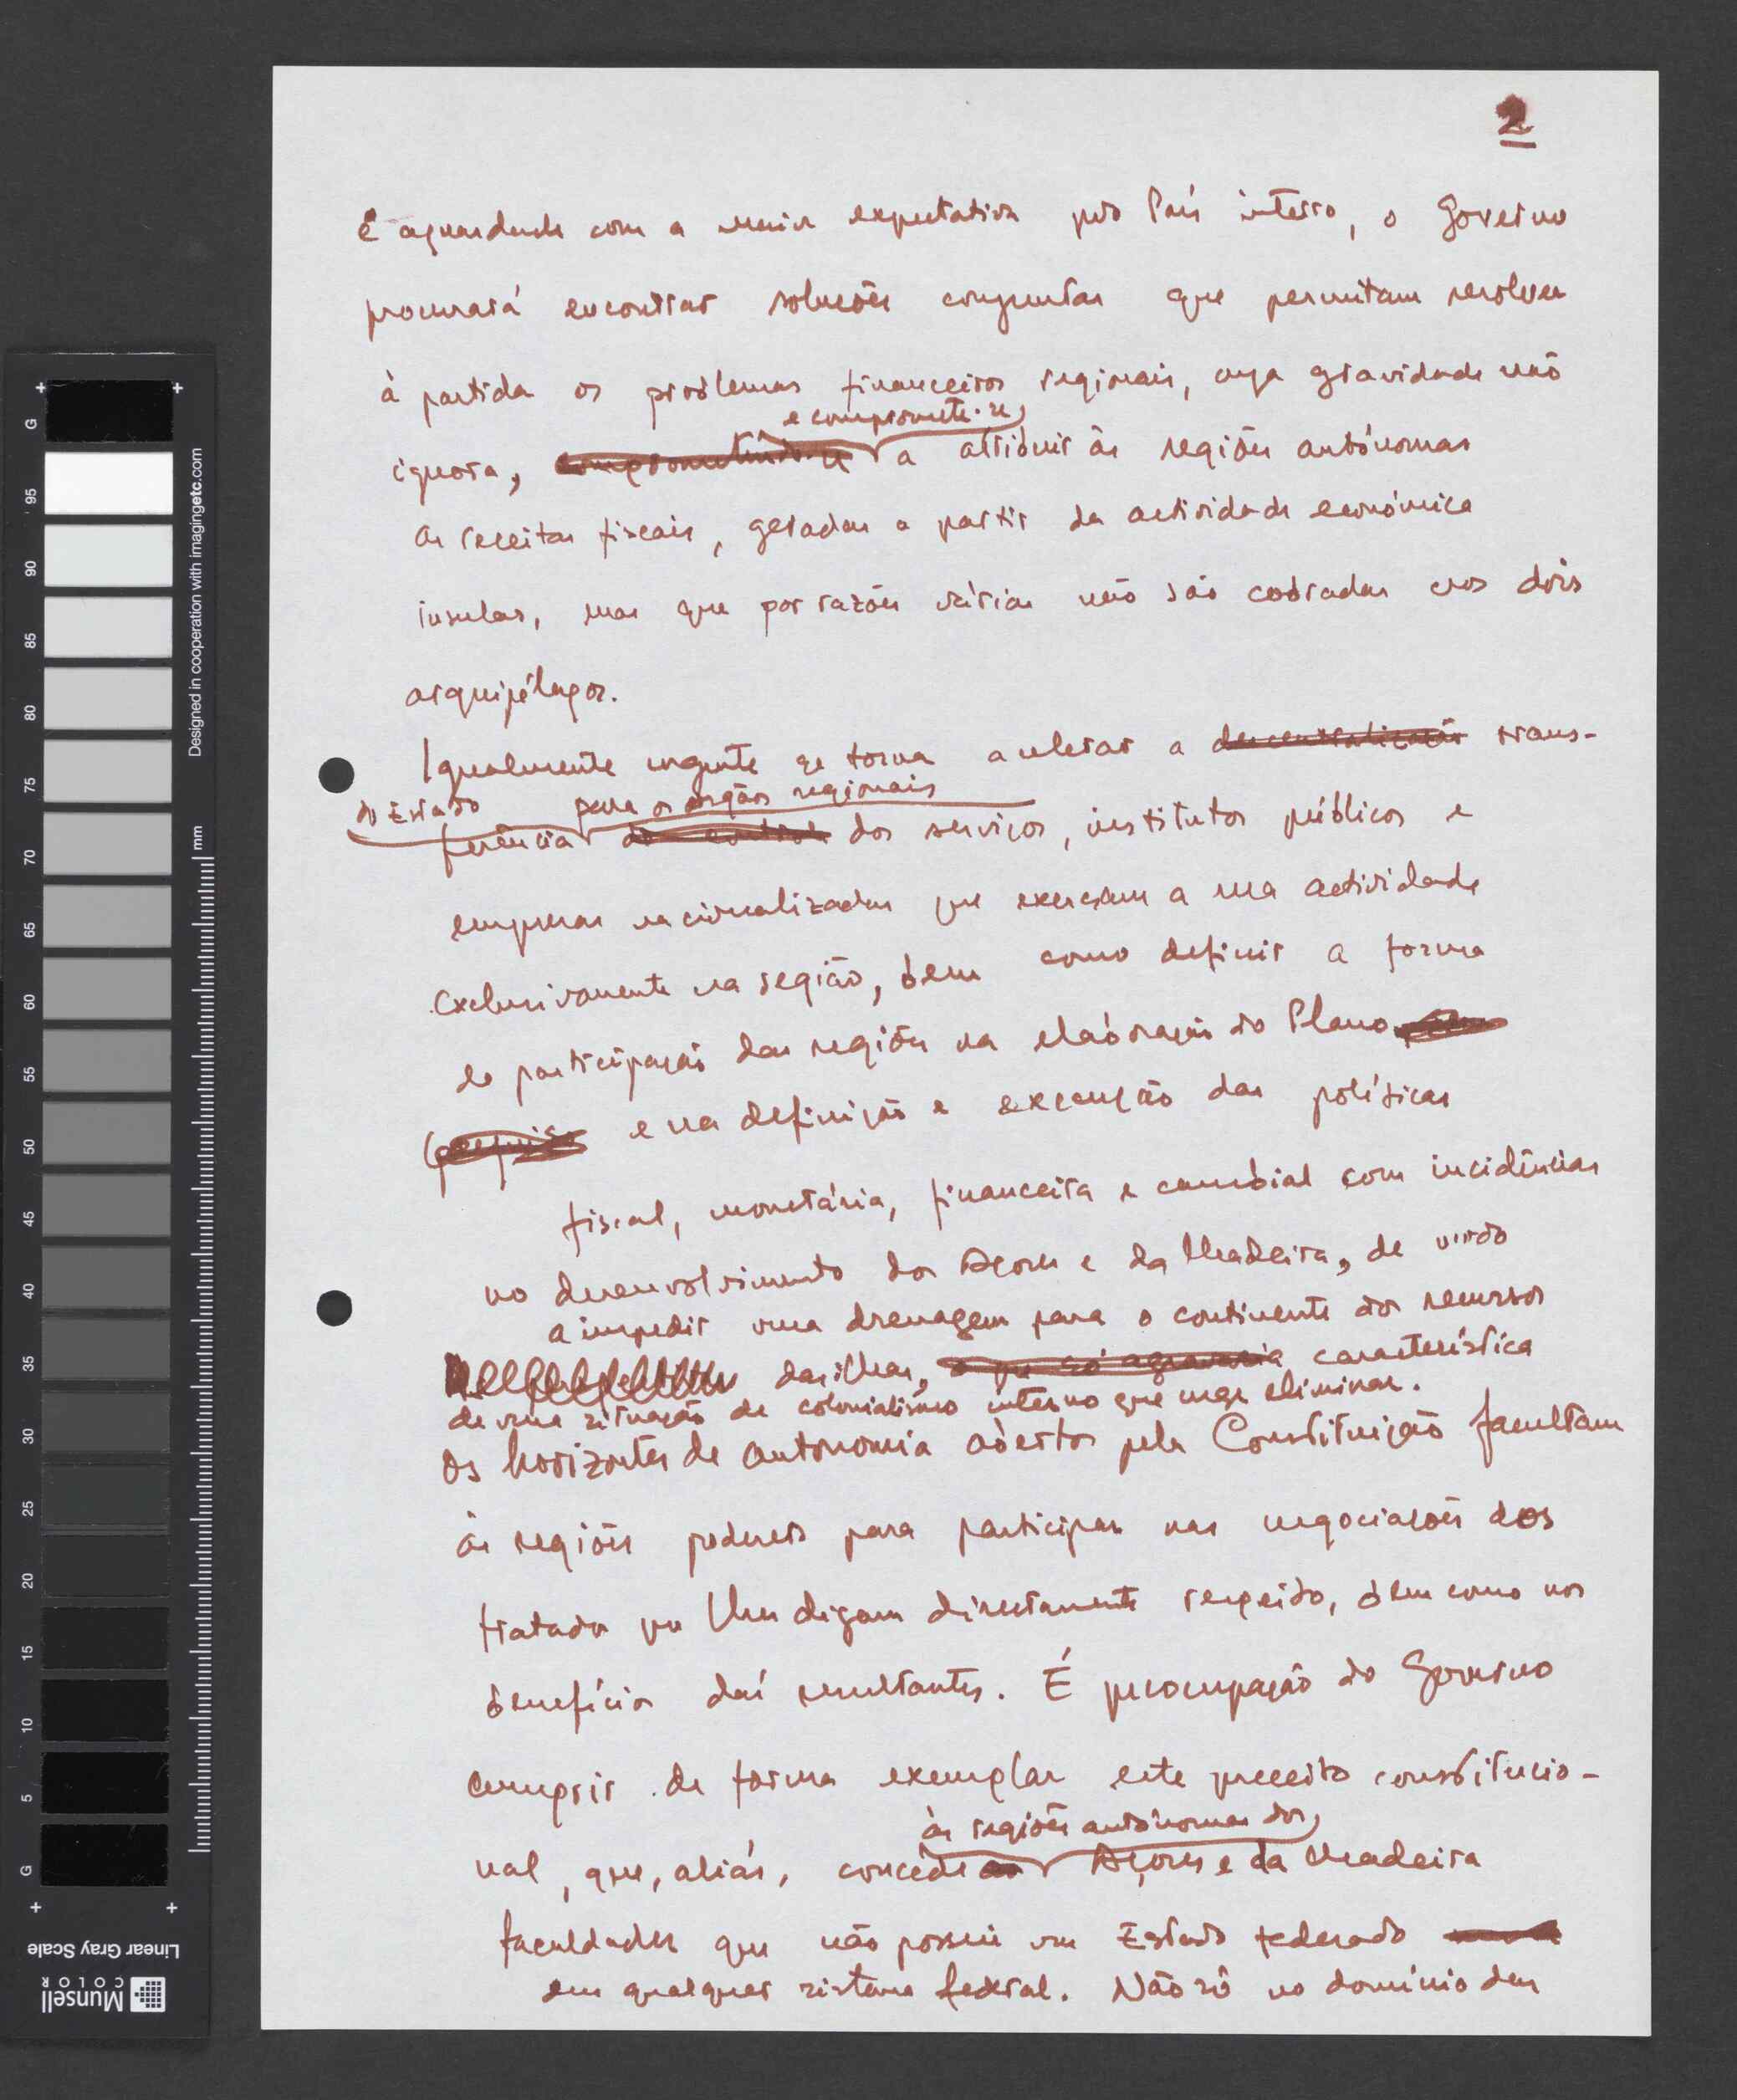 2
é aguardada com a maior expectativa pelo País inteiro, o Governo
procurará encontrar soluções conjuntas que permitam resolver
à partida os problemas financeiros regionais, cuja gravidade não
e compromete-se
ignora, comprometendo-se a atribuir às regiões autónomas
as receitas fiscais, geradas a partir da actividade económica
insular, mas que por razões várias não são cobradas nos dois
arquipélagos.
Igualmente urgente se torna acelerar a descentralização trans-
do Estado para os orgãos regionais
ferência do control dos serviços, institutos públicos e
empresas nacionalizadas que exerçam a sua actividade
exclusivamente na região, bem como definir a forma
de participação das regiões na elaboração do Plano
e na definição e execução das políticas
fiscal, monetária, financeira e cambial com incidências
no desenvolvimento dos Açores e da Madeira, de modo
a impedir uma drenagem para o continente dos recursos
das ilhas, o que só agravaria característica
de uma situação de colonialismo interno que urge eliminar.
Os horizontes de autonomia abertos pela Constituição facultam
às regiões poderes para participar nas negociações dos
tratados que lhes digam directamente respeito, bem como nos
benefícios daí resultantes. É preocupação do Governo
cumprir de forma exemplar este preceito constitucio-
às regiões autónomas dos
nal, que, aliás, concede aos Açores e da Madeira
faculdades que não possui um Estado federado
em qualquer sistema federal. Não só no domínio das
G
95
90
85
80
75
70
65
60
55
50
45
40
35
30
25
20
15
10
5
G
Designed in cooperation with imagingetc.com
mm
Linear Gray Scale
Munsell
COLOR